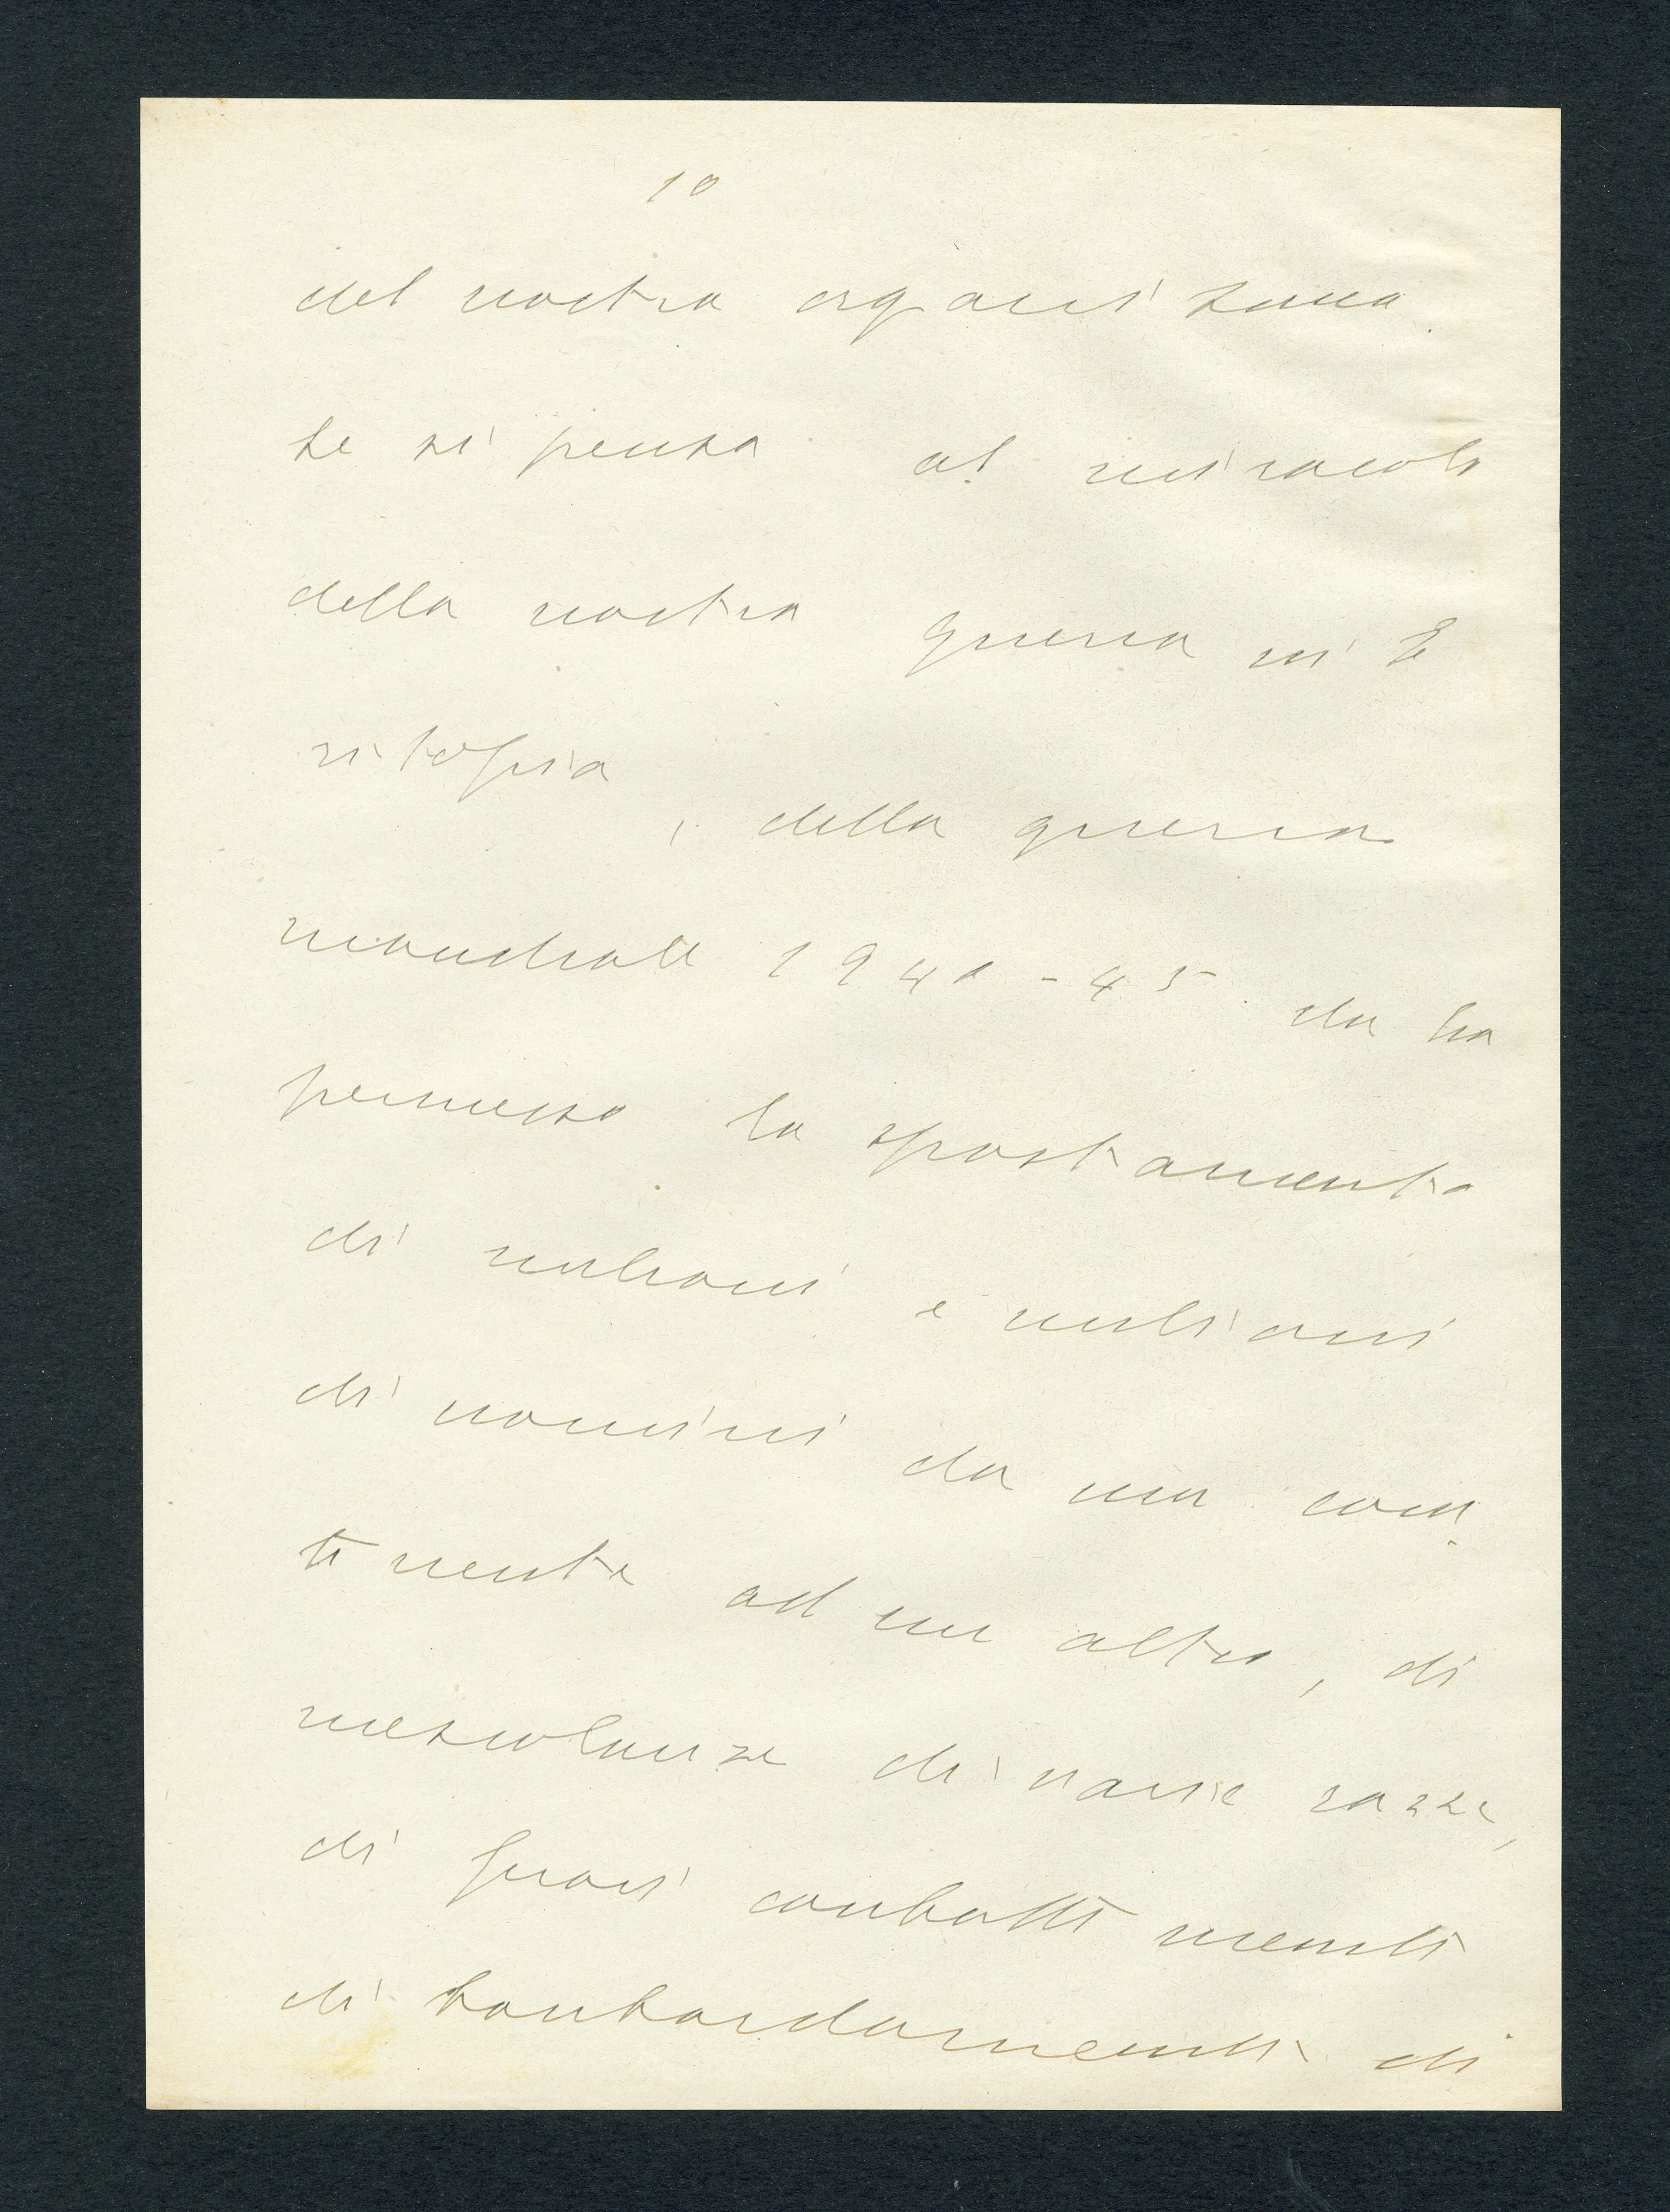 10
del nostro organismo.
Se si pensa al miracolo
della nostra guerra in E
ritopia
, della guerra
mondiale 1940-45 che ha
permesso lo spostamento
di milioni e milioni
di uomini da un con
tinente ad un altro, di
mescolanze di varie razze,
di feroci combattimenti
di bombardamenti di